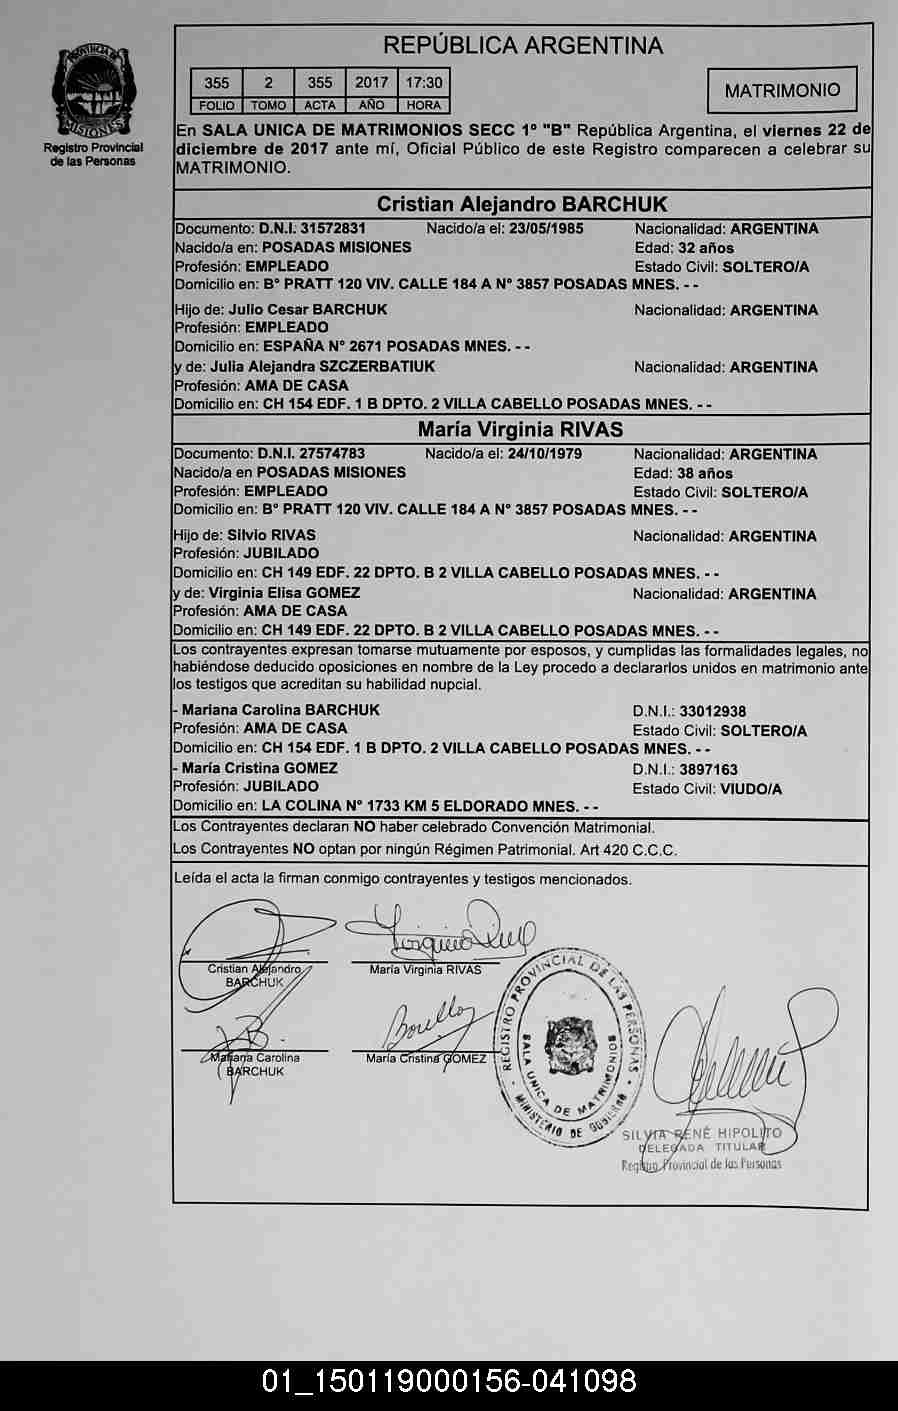 PROVINCIA DE
MISIONES
Registro Provincial
de las Personas
REPÚBLICA ARGENTINA
355 2 355 2017 17:30
FOLIO TOMO ACTA AÑO HORA
MATRIMONIO
En SALA UNICA DE MATRIMONIOS SECC 1º "B" República Argentina, el viernes 22 de
diciembre de 2017 ante mí, Oficial Público de este Registro comparecen a celebrar su
MATRIMONIO.
Cristian Alejandro BARCHUK
Documento: D.N.I. 31572831 Nacido/a el: 23/05/1985 Nacionalidad: ARGENTINA
Nacido/a en: POSADAS MISIONES Edad: 32 años
Profesión: EMPLEADO Estado Civil: SOLTERO/A
Domicilio en: Bº PRATT 120 VIV. CALLE 184 A Nº 3857 POSADAS MNES. - -
Hijo de: Julio Cesar BARCHUK Nacionalidad: ARGENTINA
Profesión: EMPLEADO
Domicilio en: ESPAÑA Nº 2671 POSADAS MNES. - -
y de: Julia Alejandra SZCZERBATIUK Nacionalidad: ARGENTINA
Profesión: AMA DE CASA
Domicilio en: CH 154 EDF. 1 B DPTO. 2 VILLA CABELLO POSADAS MNES. - -
María Virginia RIVAS
Documento: D.N.I. 27574783 Nacido/a el: 24/10/1979 Nacionalidad: ARGENTINA
Nacido/a en POSADAS MISIONES Edad: 38 años
Profesión: EMPLEADO Estado Civil: SOLTERO/A
Domicilio en: Bº PRATT 120 VIV. CALLE 184 A Nº 3857 POSADAS MNES. - -
Hijo de: Silvio RIVAS Nacionalidad: ARGENTINA
Profesión: JUBILADO
Domicilio en: CH 149 EDF. 22 DPTO. B 2 VILLA CABELLO POSADAS MNES. - -
y de: Virginia Elisa GOMEZ Nacionalidad: ARGENTINA
Profesión: AMA DE CASA
Domicilio en: CH 149 EDF. 22 DPTO. B 2 VILLA CABELLO POSADAS MNES. - -
Los contrayentes expresan tomarse mutuamente por esposos, y cumplidas las formalidades legales, no
habiéndose deducido oposiciones en nombre de la Ley procedo a declararlos unidos en matrimonio ante
los testigos que acreditan su habilidad nupcial.
- Mariana Carolina BARCHUK D.N.I.: 33012938
Profesión: AMA DE CASA Estado Civil: SOLTERO/A
Domicilio en: CH 154 EDF. 1 B DPTO. 2 VILLA CABELLO POSADAS MNES. - -
- María Cristina GOMEZ D.N.I.: 3897163
Profesión: JUBILADO Estado Civil: VIUDO/A
Domicilio en: LA COLINA Nº 1733 KM 5 ELDORADO MNES. - -
Los Contrayentes declaran NO haber celebrado Convención Matrimonial.
Los Contrayentes NO optan por ningún Régimen Patrimonial. Art 420 C.C.C.
Leída el acta la firman conmigo contrayentes y testigos mencionados.
Cristian Alejandro
BARCHUK
María Virginia RIVAS
Mariana Carolina
BARCHUK
María Cristina GOMEZ
REGISTRO PROVINCIAL DE LAS PERSONAS
SALA UNICA DE MATRIMONIOS
MINISTERIO DE GOBIERNO
SILVIA RENÉ HIPOLITO
DELEGADA TITULAR
Registro Provincial de las Personas
01_150119000156-041098